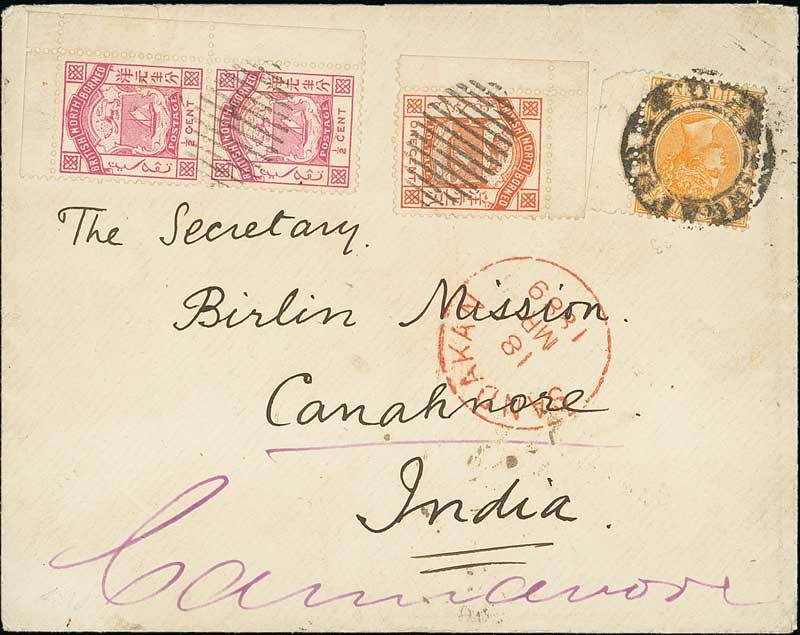 分半元洋 分半元洋
BRITISH NORTH BORNEO BRITISH NORTH BORNEO BRITISH NORTH BORNEO
POSTAGE POSTAGE
½ CENT ½ CENT
The Secretary.
Birlin Mission.
Canahnore.
India.
Cannanore
SANDAKAN
18
MR
1889